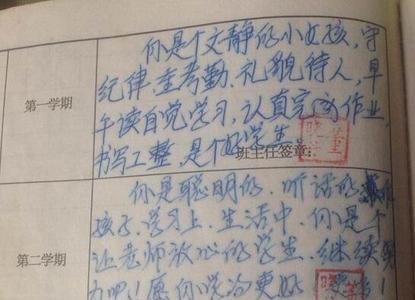 你是个文静的小女孩,守
纪律,重考勤,礼貌待人,早
第一学期
午读自觉学习,认真完成作业,
书写工整,是个好学生。
班主任签章:
你是聪明的,听话的
孩子,学习上、生活中,你是个
让老师放心的学生,继续努
第二学期
力吧!愿你学习更好